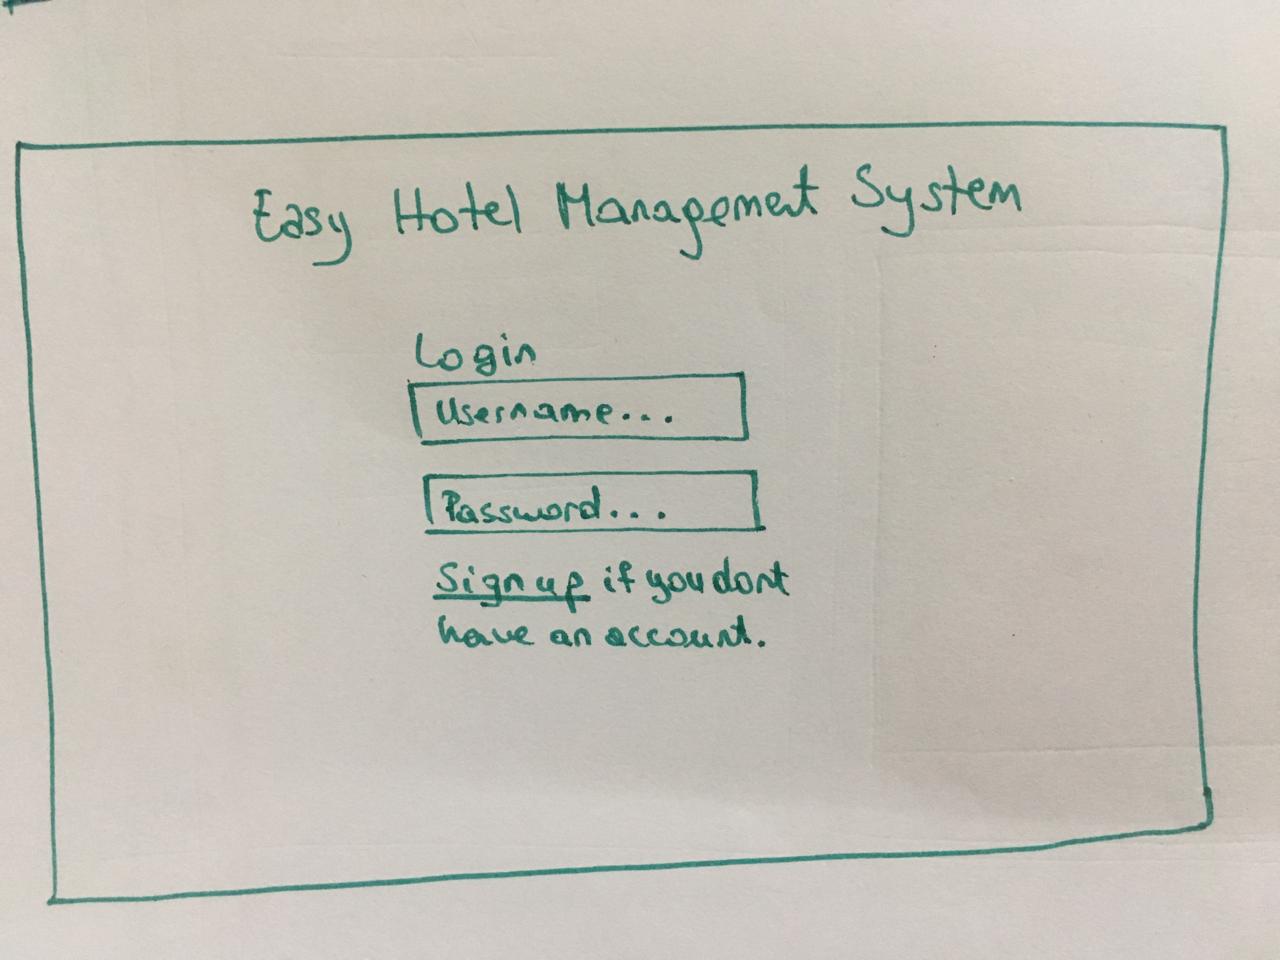 Easy Hotel Management System
Login
Username...
Password...
Sign up if you dont
have an account.